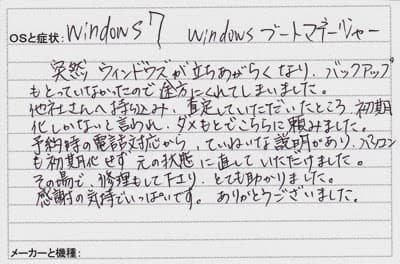 OSと症状: Windows 7 Windows ブートマネージャー
突然、ウィンドウズが立ちあがらくなり、バックアップ
もとっていなかったので途方にくれてしまいました。
他社さんへ持ち込み、査定していただいたところ、初期
化しかないと言われ、ダメもとでこちらに頼みました。
予約時の電話対応から、ていねいな説明があり、パソコン
も初期化せず元の状態に直していただけました。
その場で、修理もして下さり、とても助かりました。
感謝の気持でいっぱいです。ありがとうございました。
メーカーと機種: